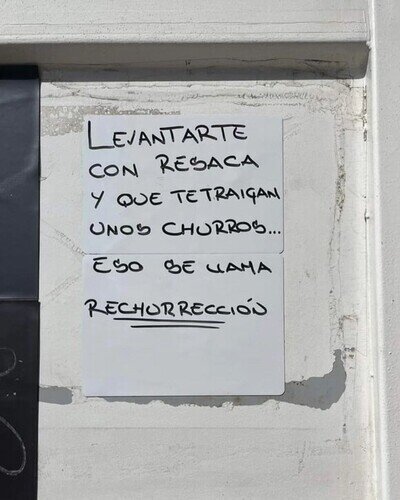 LEVANTARTE
CON RESACA
Y QUE TETRAIGAN
UNOS CHURROS...
ESO SE LLAMA
RECHURRECCIÓN